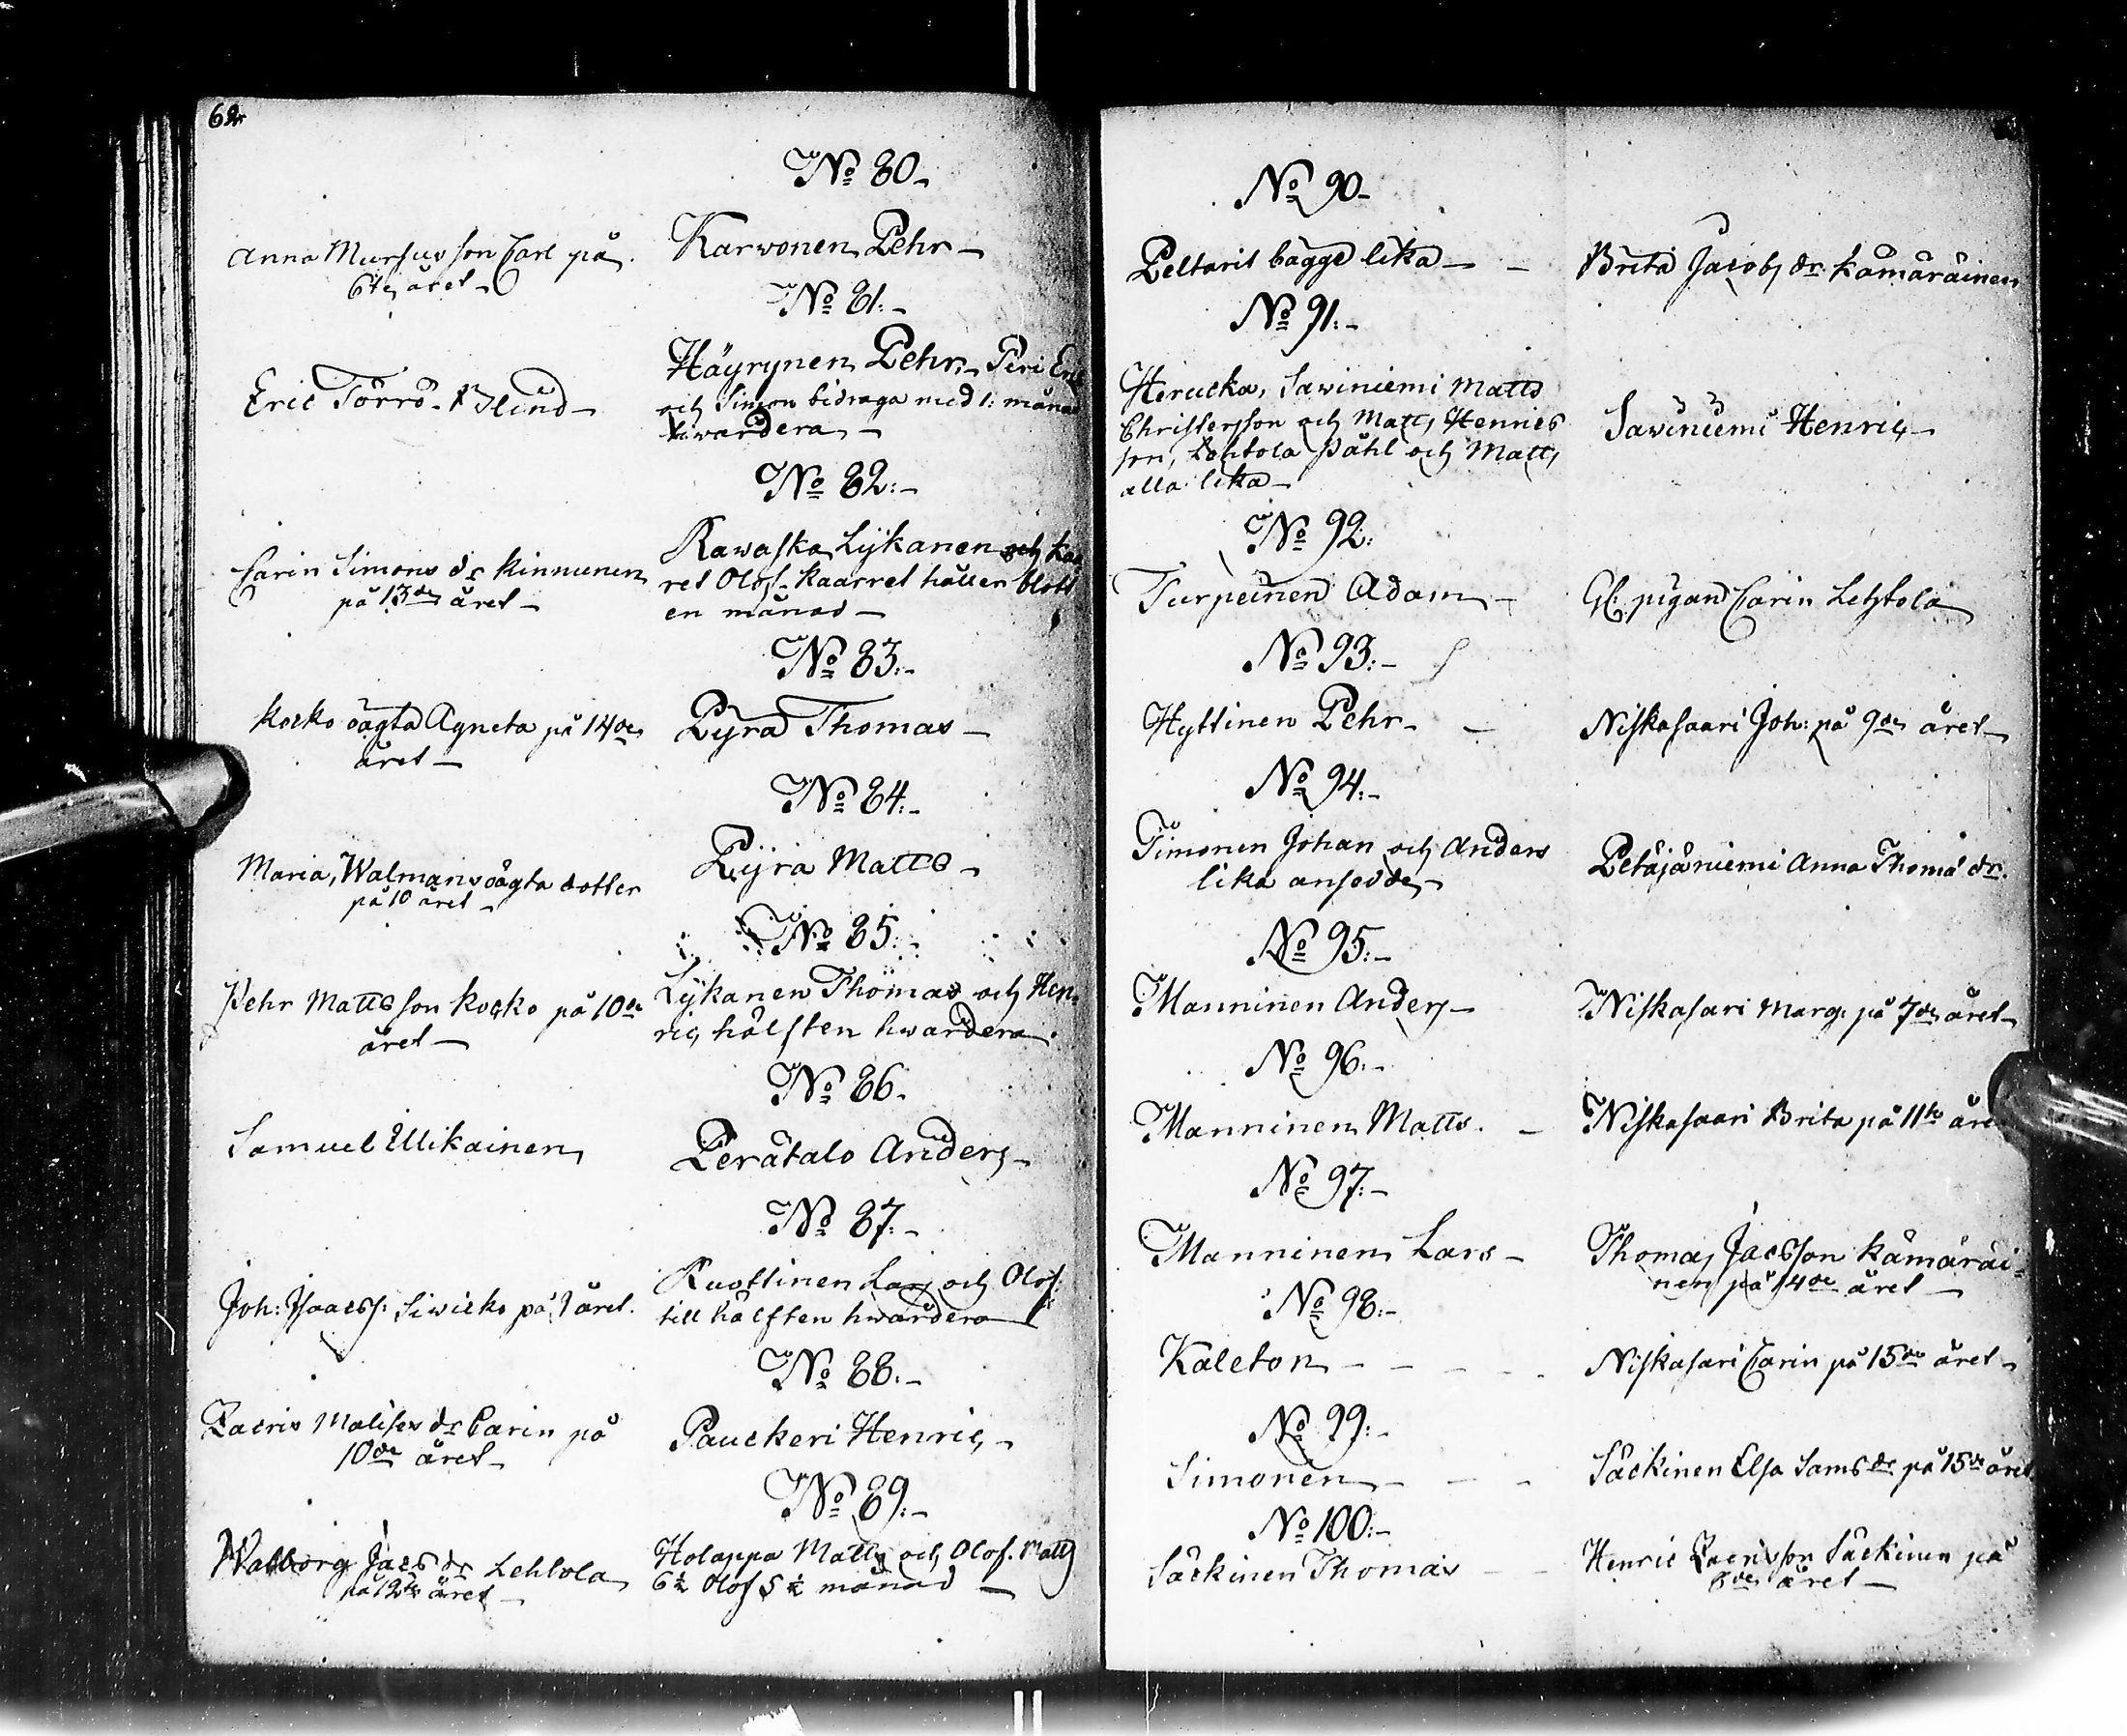 62
No 80.
Anna Mursus son Carl på
6te året
Karvonen Pehr
No 81.
Eric Törrö Blind
Häyrynen Pehr, Peri Eric
och Simon bidraga med 1: månad
hvardera
No 82.
Carin Simons dr Kinnunen
på 13de året
Rawaska Lykanen och Kaa
ret Olof. Kaarret håller blott
en månad
No 83.
Kocko oägta Agneta på 14de
året
Pyrä Thomas
No 84.
Maria, Walmans oägta dotter
på 10 året
Pyrä Matts
No 85.
Pehr Mattsson Kocko på 10de
året
Lykanen Thomas och Hen
ric, hälften hvardera.
No 86.
Samuel Ullikainen
Perätalo Anders
No 87.
Joh: Isacss: Siwicko på året.
Ruottinen Lars och Olof:
till hälften hvardera
No 88.
Zacris Malises dr Carin på
10de året
Pauckeri Henric
No 89.
Walborg Jacs dr Lehtola
på 12te året
Holappa Matts och Olof. Matts
6½ Olof 5½ månad
No 90
Peltarit bägge lika
Brita Jacobs dr Kämäräinen
No 91.
Herucka, Sawiniemi Matts
Christersson och Matts Henrics
son, Lehtola Påhl och Matts,
alla lika
Sawiniemi Henric
No 92.
Turpeinen Adam
Gl: pigan Carin Lehtola
No 93.
Hyttinen Pehr
Niskasaari Joh: på 9de året
No 94.
Timonen Johan och Anders
lika ansedde
Petäjäniemi Anna Thoms dr.
No 95.
Manninen Anders
Niskasari Marg: på 7de året
No 96.
Manninen Matts.
Niskasaari Brita på 11te åre
No 97.
Manninen Lars
Thomas Jacsson Kämäräi
nen på 14de året
No 98.
Kaleton
Niskasari Carin på 15de året
No 99.
Simonen
Säckinen Elsa Sams dr på 15de året
No 100.
Säckinen Thomas
Henric Zacrisson Säckinen på
året